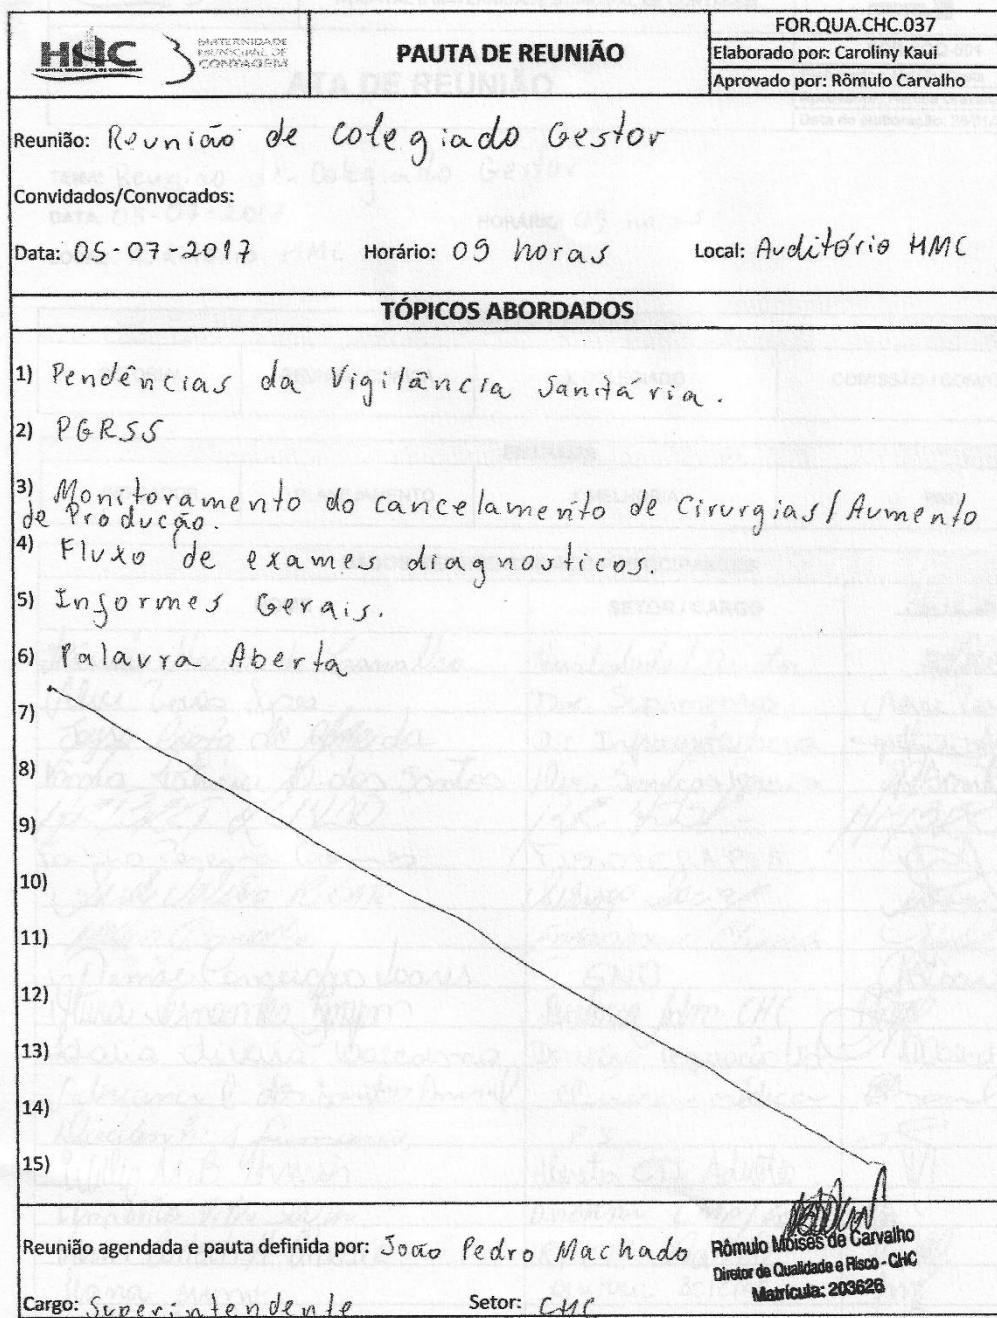 HMC
HOSPITAL MUNICIPAL DE CONTAGEM
MATERNIDADE
MUNICIPAL DE
CONTAGEM
PAUTA DE REUNIÃO
FOR.QUA.CHC.037
Elaborado por: Caroliny Kaui
Aprovado por: Rômulo Carvalho
ATA DE REUNIÃO
Reunião: Reunião de colegiado Gestor
Convidados/Convocados:
Data: 05-07-2017 Horário: 09 horas Local: Auditório HMC
TÓPICOS ABORDADOS
1) Pendências da Vigilância Sanitária.
2) PGRSS
3) Monitoramento do cancelamento de Cirurgias/Aumento
de Producção.
4) Fluxo de exames diagnosticos.
5) Informes Gerais.
6) Palavra Aberta
7)
8)
9)
10)
11)
12)
13)
14)
15)
Reunião agendada e pauta definida por: João Pedro Machado
Rômulo Moises de Carvalho
Diretor de Qualidade e Risco - CHC
Matrícula: 203626
Cargo: Superintendente Setor: CHC